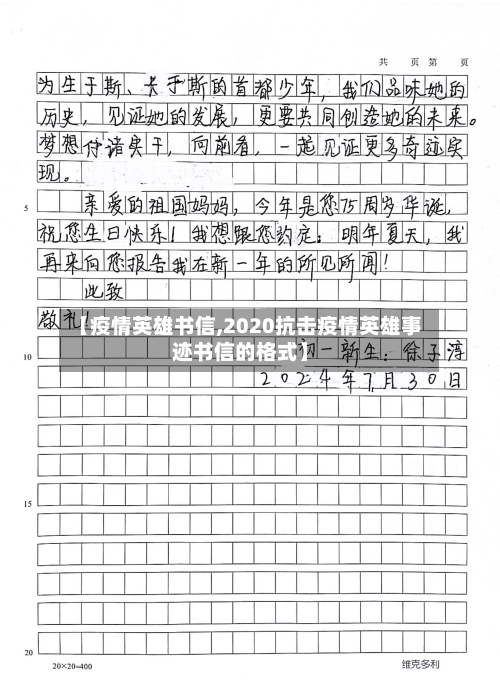 共 页 第 页
为生于斯、长于斯的首都少年，我们品味她的
历史，见证她的发展，更要共同创造她的未来。
梦想付诸实干，向前看，一起见证更多奇迹实
现。
5
亲爱的祖国妈妈，今年是您75周岁华诞，
祝您生日快乐！我想跟您约定：明年夏天，我
再来向您报告我在新一年的所见所闻！
此致
敬礼！
【疫情英雄书信,2020抗击疫情英雄事
迹书信的格式】
10
初一新生：徐子淳
2024年7月30日
15
20
20×20=400
维克多利